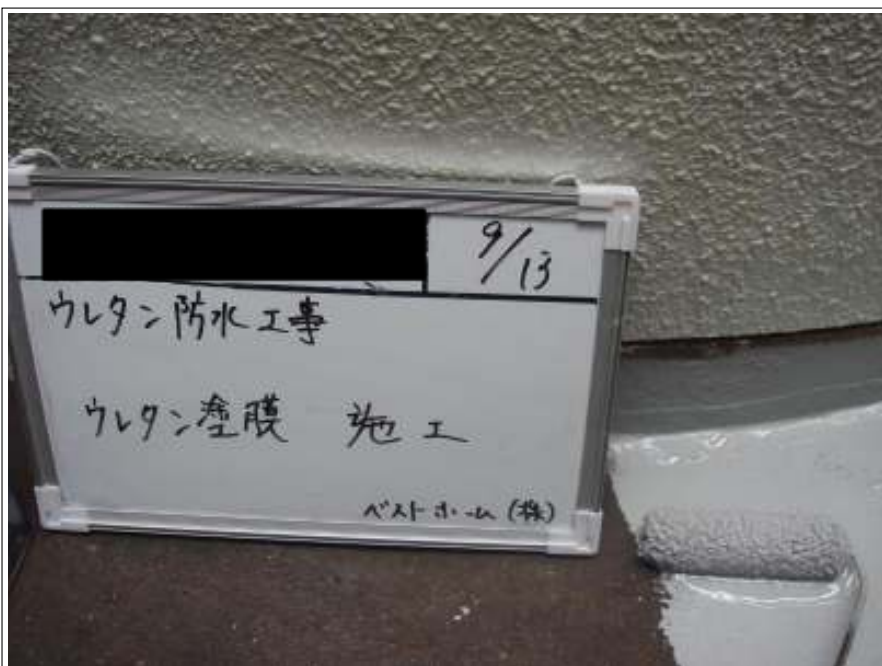 9/13
ウレタン防水工事
ウレタン塗膜 施工
ベストホーム(株)